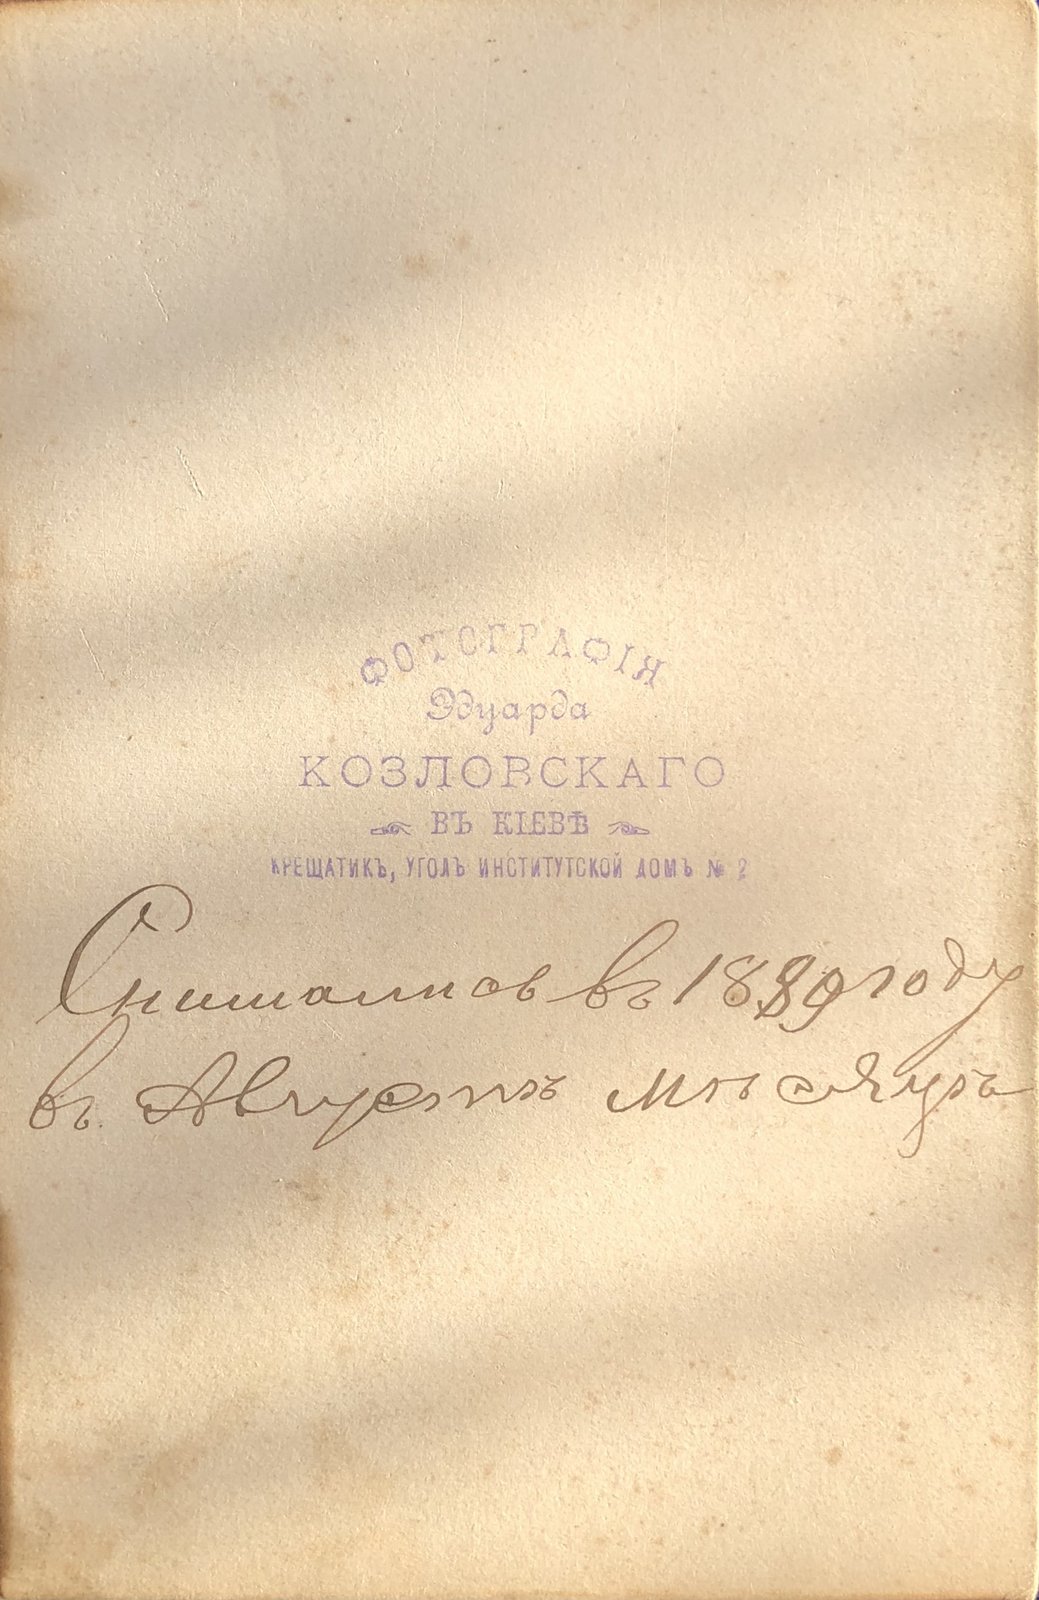 ФОТОГРАФІЯ
Эдуарда
КОЗЛОВСКАГО
ВЪ КІЕВѢ
КРЕЩАТИКЪ, УГОЛЪ ИНСТИТУТСКОЙ ДОМЪ № 2
Снимались въ 1889 году
въ Августѣ мѣсяцѣ